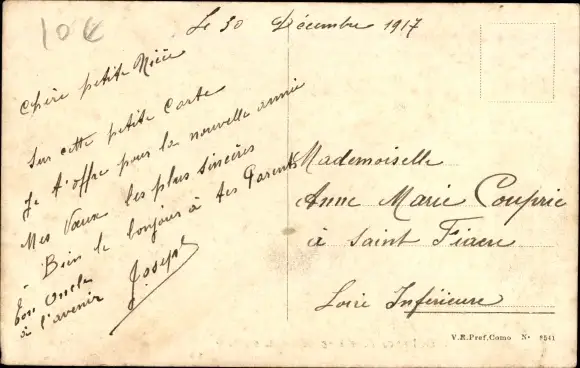 10€
Le 30 Décembre 1917
Chère petite Nièce
Sur cette petite Carte
Je t'offre pour la nouvelle année
Mes Vœux les plus sincères
Bien le bonjour à tes Parents
Ton Oncle
à l'avenir
Joseph
Mademoiselle
Anne Marie Couprie
à Saint Fiacre
Loire Inférieure
V.R.Pref.Como N° 8541